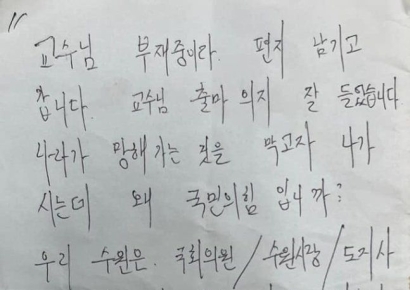 〃
교수님 부재중이라. 편지 남기고
갑니다. 교수님 출마 의지 잘 들었습니다
나라가 망해 가는 것을 막고자 나가
시는데 왜 국민의힘 입니까?
우리 수원은. 국회의원/수원시장/도지사